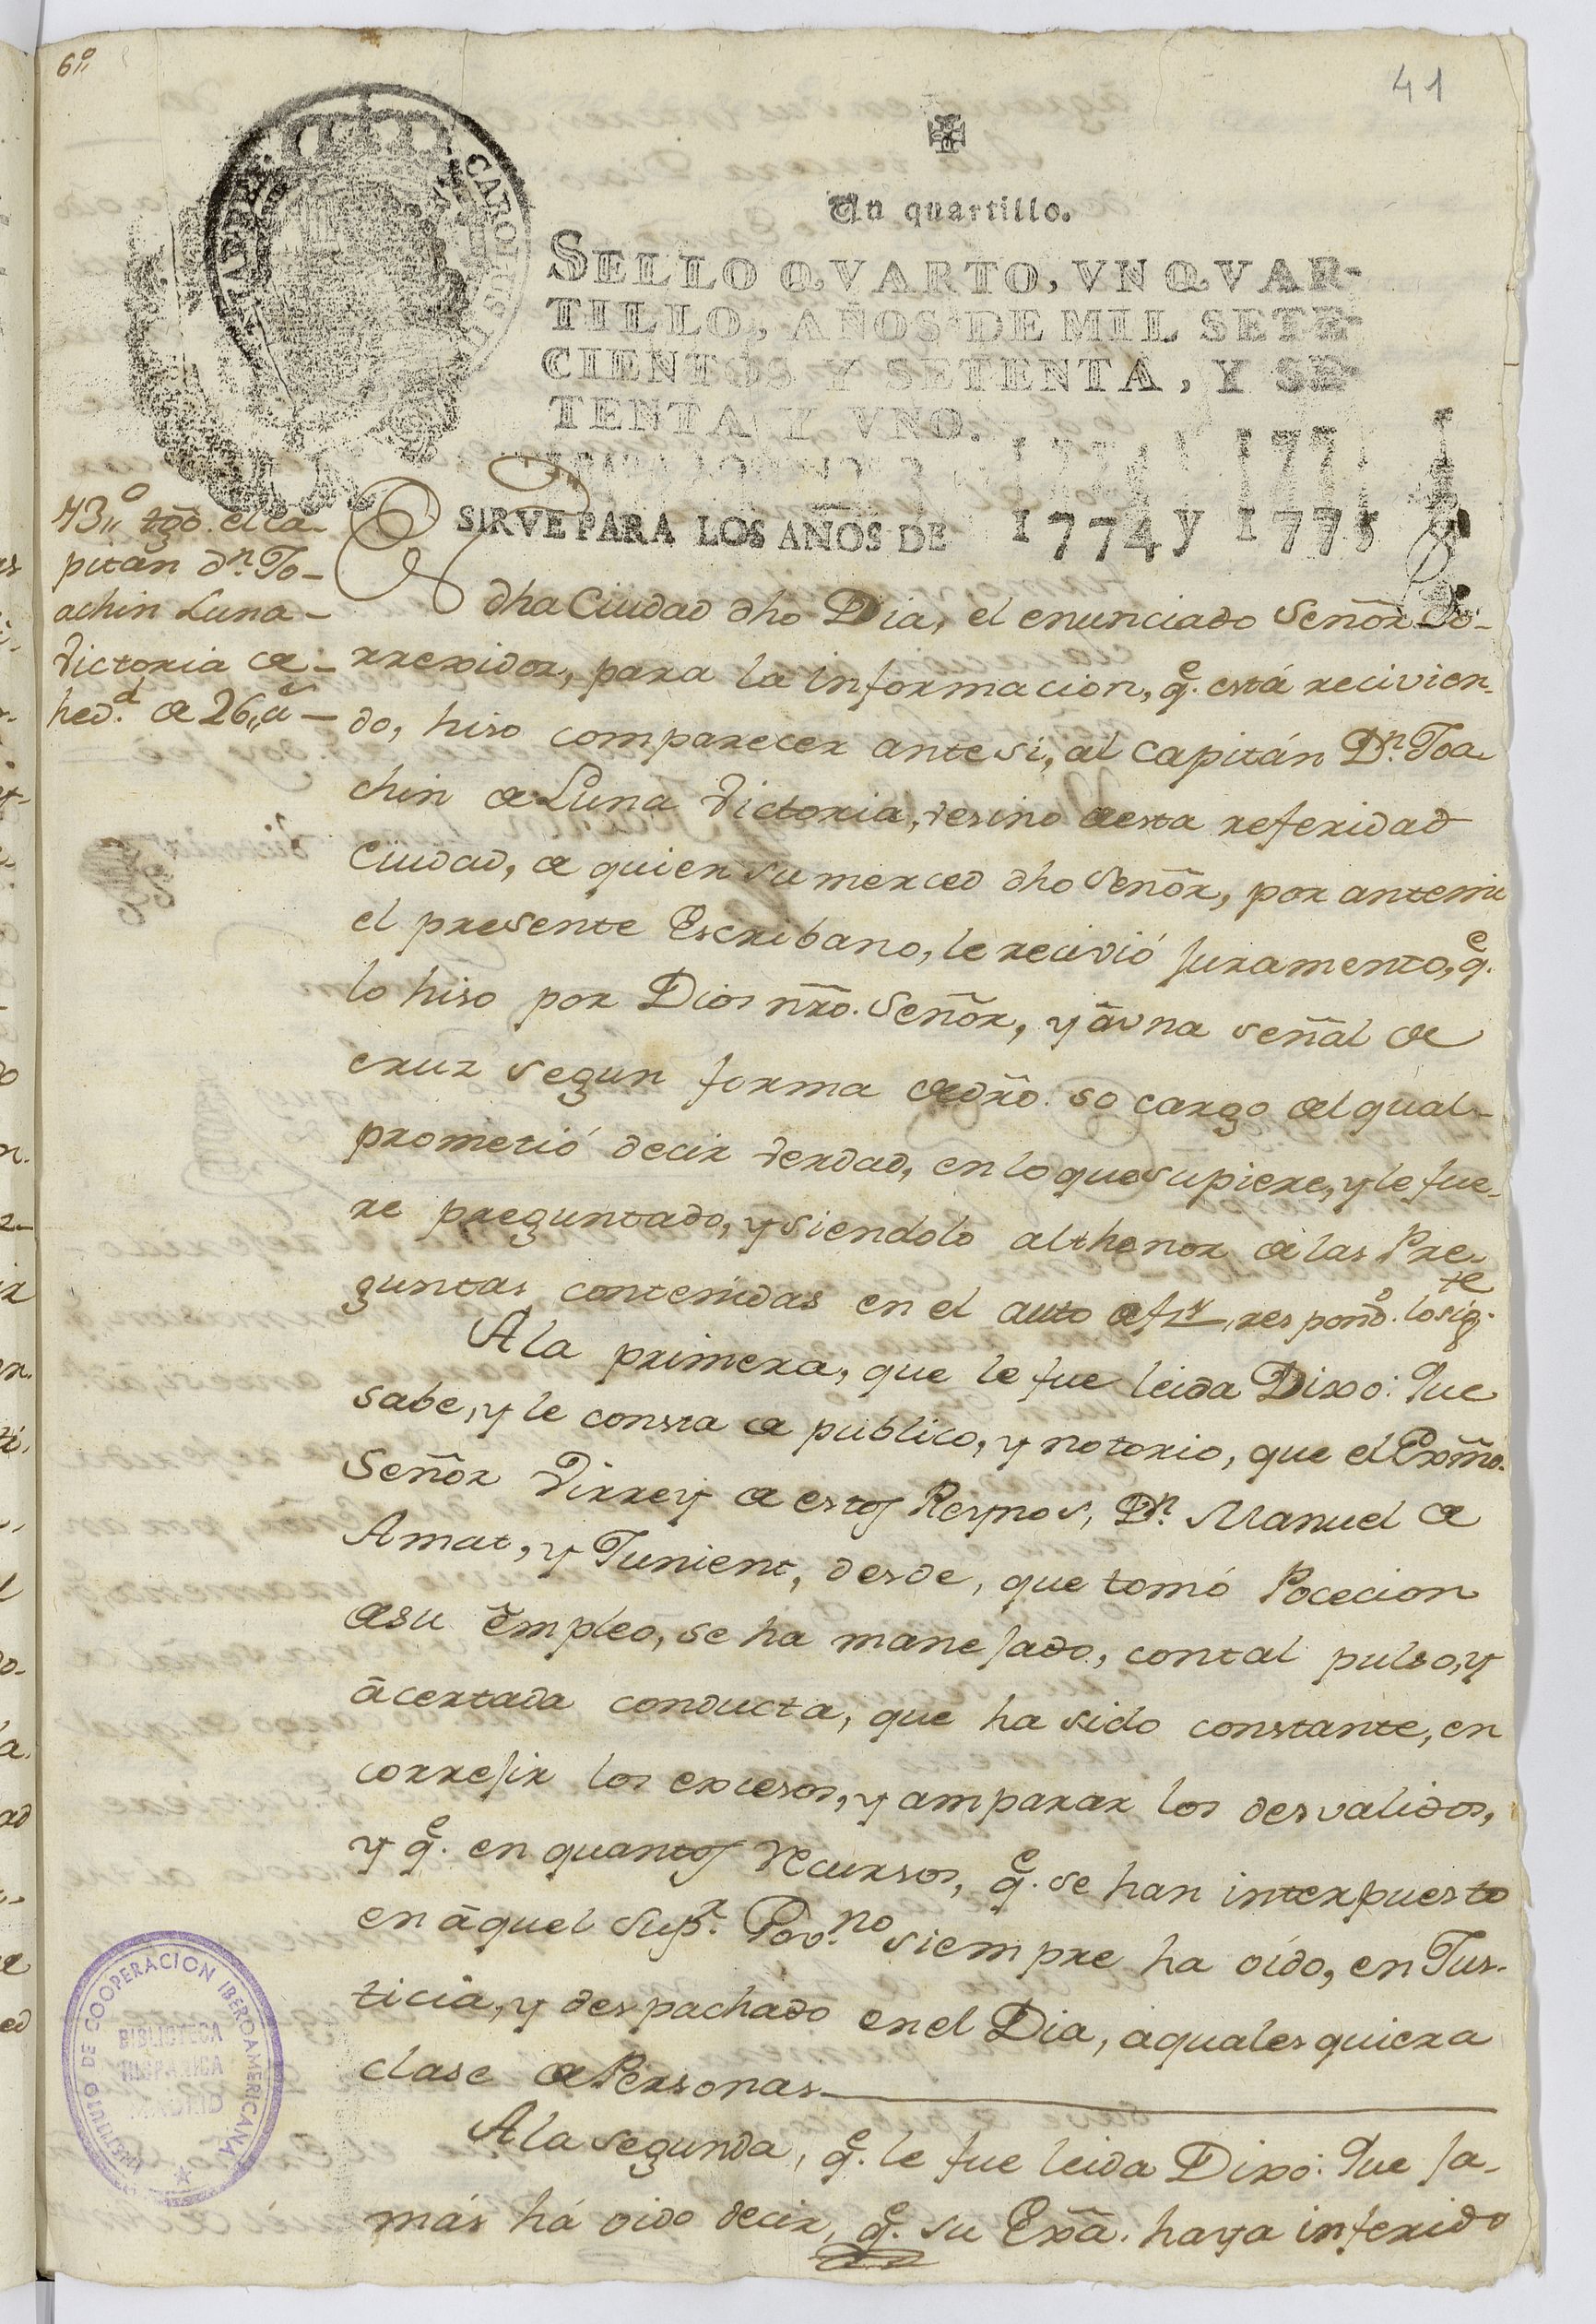 6,,o
41
Un quartillo.
SELLO QVARTO, VN QVAR-
TILLO, AÑOS DE MIL SETE-
CIENTOS Y SETENTA, Y SE-
TENTA Y VNO.
SIRVE PARA LOS AÑOS DE 1774 y 1775
43,,o tgō. el ca-
pitan Dn. Jo-
achin Luna-
Victoria de
hed.d de 26,,a-
En dha Ciudad dho Dia, el enunciado Señor Co-
rrexidor, para la informacion, q.e está recivien-
do, hiso comparecer ante si, al Capitán Dn. Joa-
chin de Luna Victoria, vesino de esta referidad
Ciudad, de quien su merced dho Señor, por ante mi
el presente Escribano, le recivió juramento, q.e
lo hiso por Dios nr̃o. Señor, y á vna señal de
cruz segun forma de dr̃o. so cargo del qual-
prometió decir verdad, en lo que supiere, y le fue-
re preguntado, y siendolo al thenor de las Pre-
guntas contenidas en el auto de f1r, respondo. lo sig.te
A la primera, que le fue leida Dixo: Que
sabe, y le consta de publico, y notorio, que el Exmo.
Señor Virrey de estos Reynos, Dn. Manuel de
Amat, y Junient, desde, que tomó Pocecion
de su empleo, se ha manejado, con tal pulso, y
ácertada conducta, que ha sido constante, en
correjir los excesos, y amparar los desvalidos,
y q.e en quantos recursos, q.e se han interpuesto
en áquel Sup.r Gov.no siempre ha oído, en Jus-
ticia, y despachado en el Dia, a quales quiera
clase de Personas
A la segunda, q.e le fue leida Dixo: Que ja-
más há oido decir, q.e su Exã. haya inferido
INSTITUTO DE COOPERACION IBEROAMERICANA
BIBLIOTECA
HISPANICA
MADRID